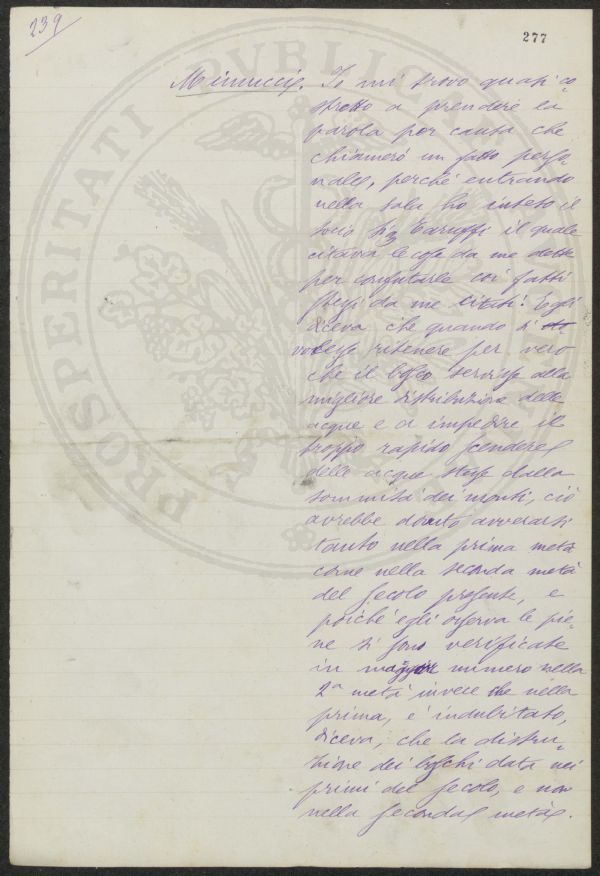 239
277
PROSPERITATI PVBLICAE
Minuccio. Io mi trovo quasi co
stretto a prendere la
parola per causa che
chiamerò un fatto perso
nale, perché entrando
nella sala ho inteso il
socio Sig Caruffi il quale
citava le cose da me dette
per confutarle coi fatti
stessi da me citati! Egli
diceva che quando si
volesse ritenere per vero
che il bosco servisse alla
migliore distribuzione delle
acque e a impedire il
troppo rapido scendere
delle acque stesse dalla
sommità dei monti, ciò
avrebbe dovuto avverarsi
tanto nella prima metà
come nella seconda metà
del secolo presente, e
poiché egli osserva le pie-
ne si sono verificate
in maggiore numero nella
2ª metà invece che nella
prima, e' indubitato,
diceva, che la distru-
zione dei boschi data nei
primi del secolo, e non
nella seconda metà.